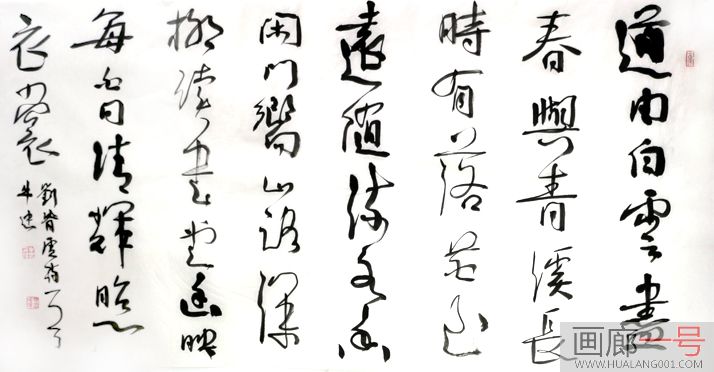 道由白雲盡
春與青溪長
時有落花至
遠隨流水香
閑門嚮山路深
柳讀書堂幽映
每白日清輝照
衣裳
劉眘虛
画廊一号
WWW.HUALANG001.COM